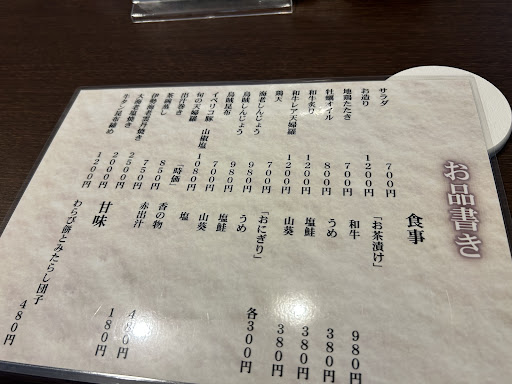 お品書き
サラダ 700円
お造り 1200円
地鶏たたき 700円
牡蠣オイル 800円
和牛炙り 1200円
和牛レア天婦羅 1200円
鶏天 700円
海老しんじょう 980円
烏賊しんじょう 980円
烏賊昆布 700円
イベリコ豚 山椒塩 1080円
旬の天婦羅 「時価」
出汁巻き 850円
茶碗蒸し 750円
伊勢海老雲丹焼き 2500円
大海老塩焼き 2000円
牛タン昆布締め 1200円
食事
「お茶漬け」
和牛 980円
うめ 380円
塩鮭 380円
山葵 380円
「おにぎり」 各300円
うめ
塩鮭
山葵
塩
香の物 480円
赤出汁 180円
甘味
わらび餅とみたらし団子 480円